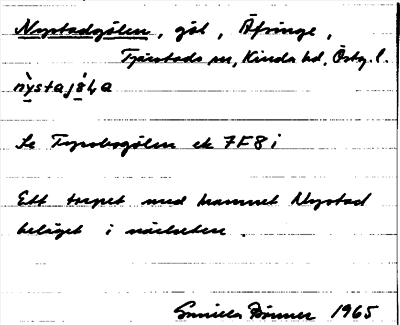 Nystadgölen, göl, Äfringe,
Tjärstads sn, Kinda hd, Östg. l.
nỳstajö́ḷa
Se Tyrobogölen ek 7F8i
Ett torpet med namnet Nystad
beläget i närheten.
Gunilla Brömer 1965